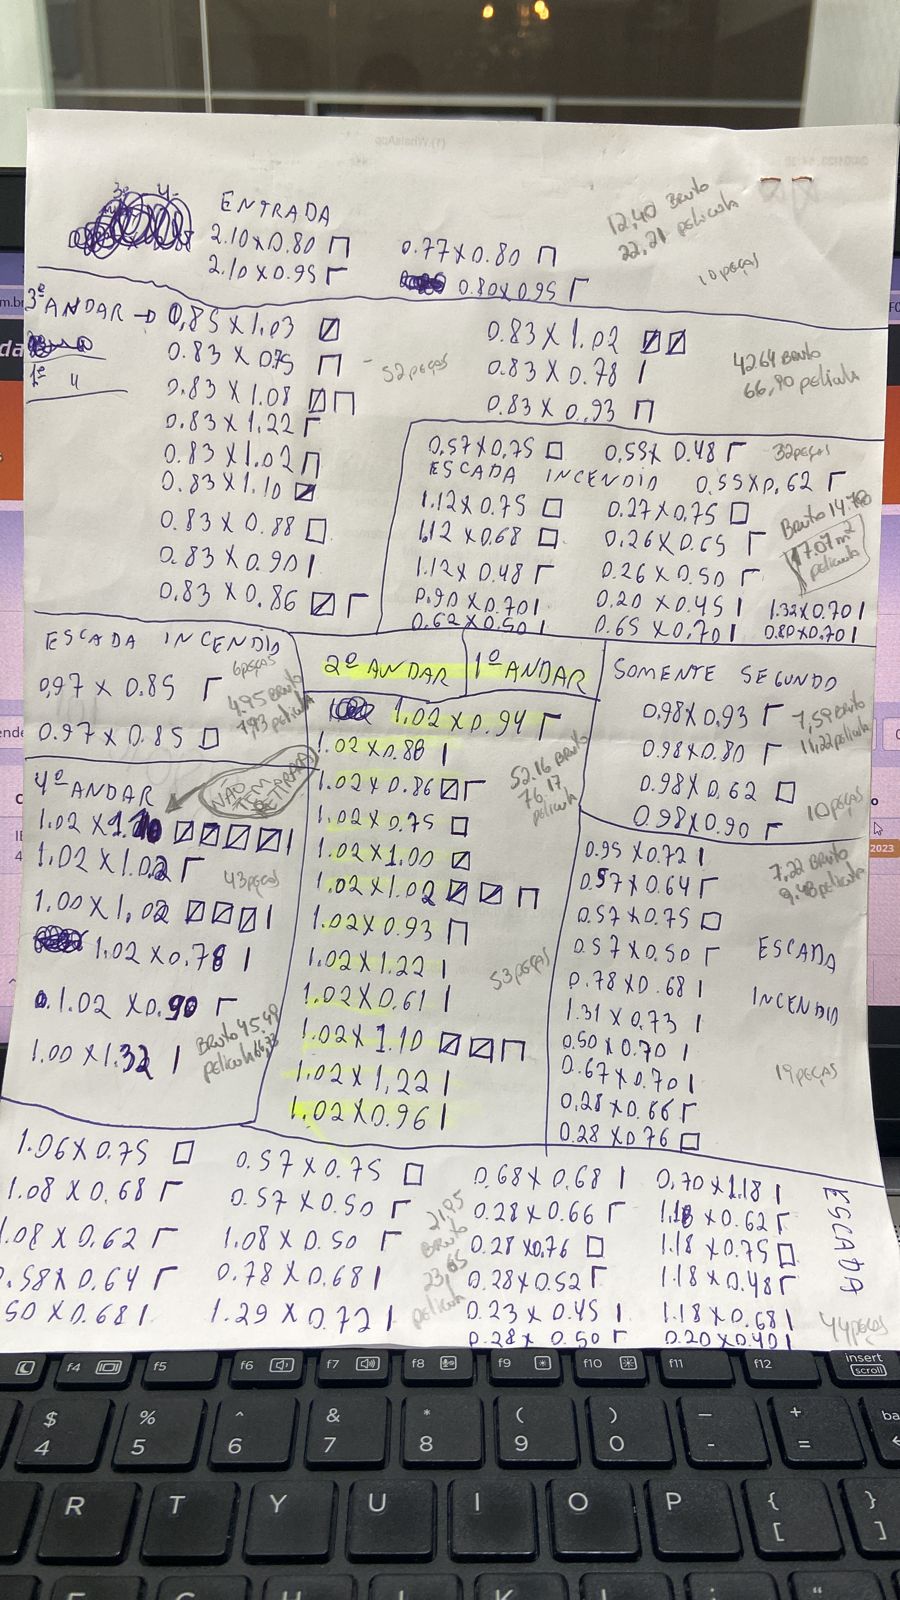 ENTRADA
2.10x0.80
2.10x0.95
0.77x0.80
0.80x0.95
12,40 Bruto
22,21 película
10 peças
3º ANDAR → 0,85 x 1.03
1º "
0.83 x 0.75
0.83 x 1.08
0.83 x 1.22
0.83 x 1.02
0.83 x 1.10
0.83 x 0.88
0.83 x 0.90
0.83 x 0.86
52 peças
0.83 x 1.02
0.83 x 0.78
0.83 x 0.93
4264 Bruto
66,90 película
0.57x0.75
0.55x 0.48
32 peças
ESCADA INCENDIO
0.55x0.62
1.12x0.75
0.27x0.75
1.12 x0.68
0.26x0.65
1.12x0.48
0.26x0.50
0.90x0.70
0.20x0.45
1.32x0.70
0.62x0.50
0.65 x0.70
0.80x0.70
Bruto 14.78
17.07m²
película
ESCADA INCENDIO
6 peças
0,97 x 0.85
0.97 x 0.85
4,95 Bruto
7,93 película
2º ANDAR
1º ANDAR
1.02 x 0.94
1.02x0.88
1.02x0.86
1.02x0.75
1.02x1.00
1.02x1.02
1.02x0.93
1.02x1.22
1.02x0.61
1.02x1.10
1.02x1,22
1.02x0.96
52.16 Bruto
76,17
película
53 peças
SOMENTE SEGUNDO
0.98x0,93
0.98x0.80
0.98x0.62
0.98x0.90
7,59 Bruto
11,22 película
10 peças
4º ANDAR
NÃO
TEM
RETIRADA
1.02 x 1.10
1.02x1.02
43 peças
1.00x1.02
1.02x0.78
1.02 x0.90
1.00x1.32
Bruto 45.49
película 66,33
0.95x0.72
0.57x0.64
0.57x0.75
0.57x0.50
0.78x0.68
1.31x0.73
0.50x0.70
0.67x0.70
0.28x0.66
0.28x0.76
7,22 Bruto
9.48 película
ESCADA
INCENDIO
19 peças
1.06x0.75
1.08x0.68
.08x0.62
.58x0.64
50x0.68
0.57x0.75
0.57x0.50
1.08x0.50
0.78x0.68
1.29x0.72
21,95
Bruto
23,65
película
0.68x0.68
0.28x0.66
0.28x0.76
0.28x0.52
0.23x0.45
0.28x 0.50
0,70x1.18
1.18x0.62
1.18x0.75
1.18x0.48
1.18x0.68
0.20x0.40
ESCADA
44 peças
f4
f5
f6
f7
f8
f9
f10
f11
f12
insert
scroll
$
4
%
5
^
6
&
7
*
8
(
9
)
0
-
+
=
R
T
Y
U
I
O
P
{
[
}
]
2023